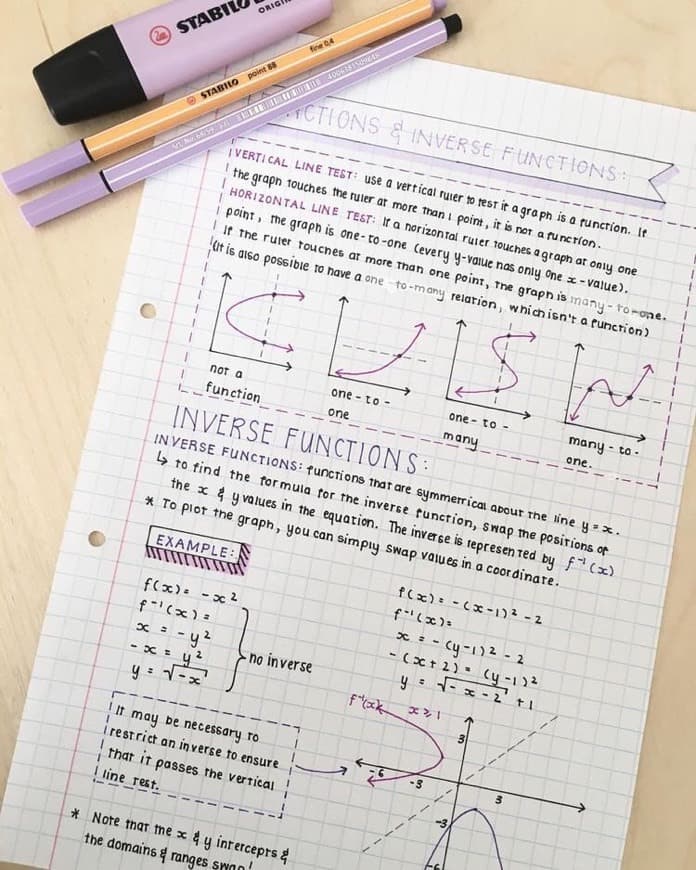 STABILO
ORIGIN
STABILO point 88 fine 0,4
& INVERSE FUNCTIONS:
VERTICAL LINE TEST: use a vertical ruler to test if a graph is a function. If
the graph touches the ruler at more than 1 point, it is not a function.
HORIZONTAL LINE TEST: If a horizontal ruler touches a graph at only one
point, the graph is one-to-one (every y-value has only one x-value).
If the ruler touches at more than one point, the graph is many-to-one.
(It is also possible to have a one-to-many relation, which isn't a function)
not a
function
one-to-
one
one-to-
many
many-to-
one.
INVERSE FUNCTIONS:
INVERSE FUNCTIONS: functions that are symmetrical about the line y=x.
↳ to find the formula for the inverse function, swap the positions of
the x & y values in the equation. The inverse is represented by f⁻¹(x)
* To plot the graph, you can simply swap values in a coordinate.
EXAMPLE:
f(x)= -x²
f⁻¹(x)=
x = -y²
-x = y²
y = √-x
no inverse
f(x)= -(x-1)²-2
f⁻¹(x)=
x = -(y-1)²-2
-(x+2) = (y-1)²
y = √-x-2 +1
It may be necessary to
restrict an inverse to ensure
that it passes the vertical
line test.
f⁻¹(x) x≥1
3
-6
-3
3
-3
-6
* Note that the x & y intercepts &
the domains & ranges swap!